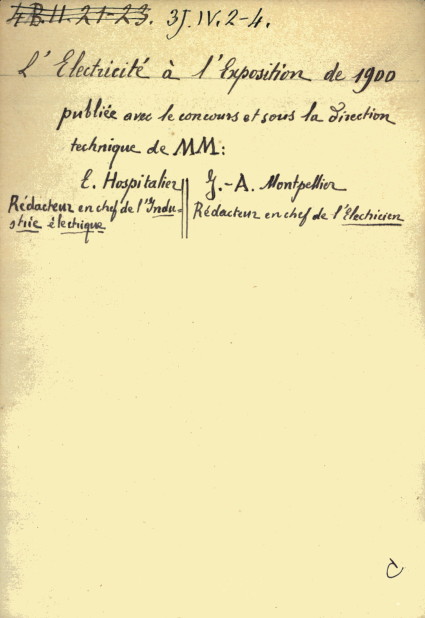 4 B.II. 21-23. 3J. IV. 2-4.
L'Electricité à l'Exposition de 1900
publiée avec le concours et sous la direction
technique de MM:
E. Hospitalier
Rédacteur en chef de l'Indu-
strie électrique
J.-A. Montpellier
Rédacteur en chef de l'Electricien